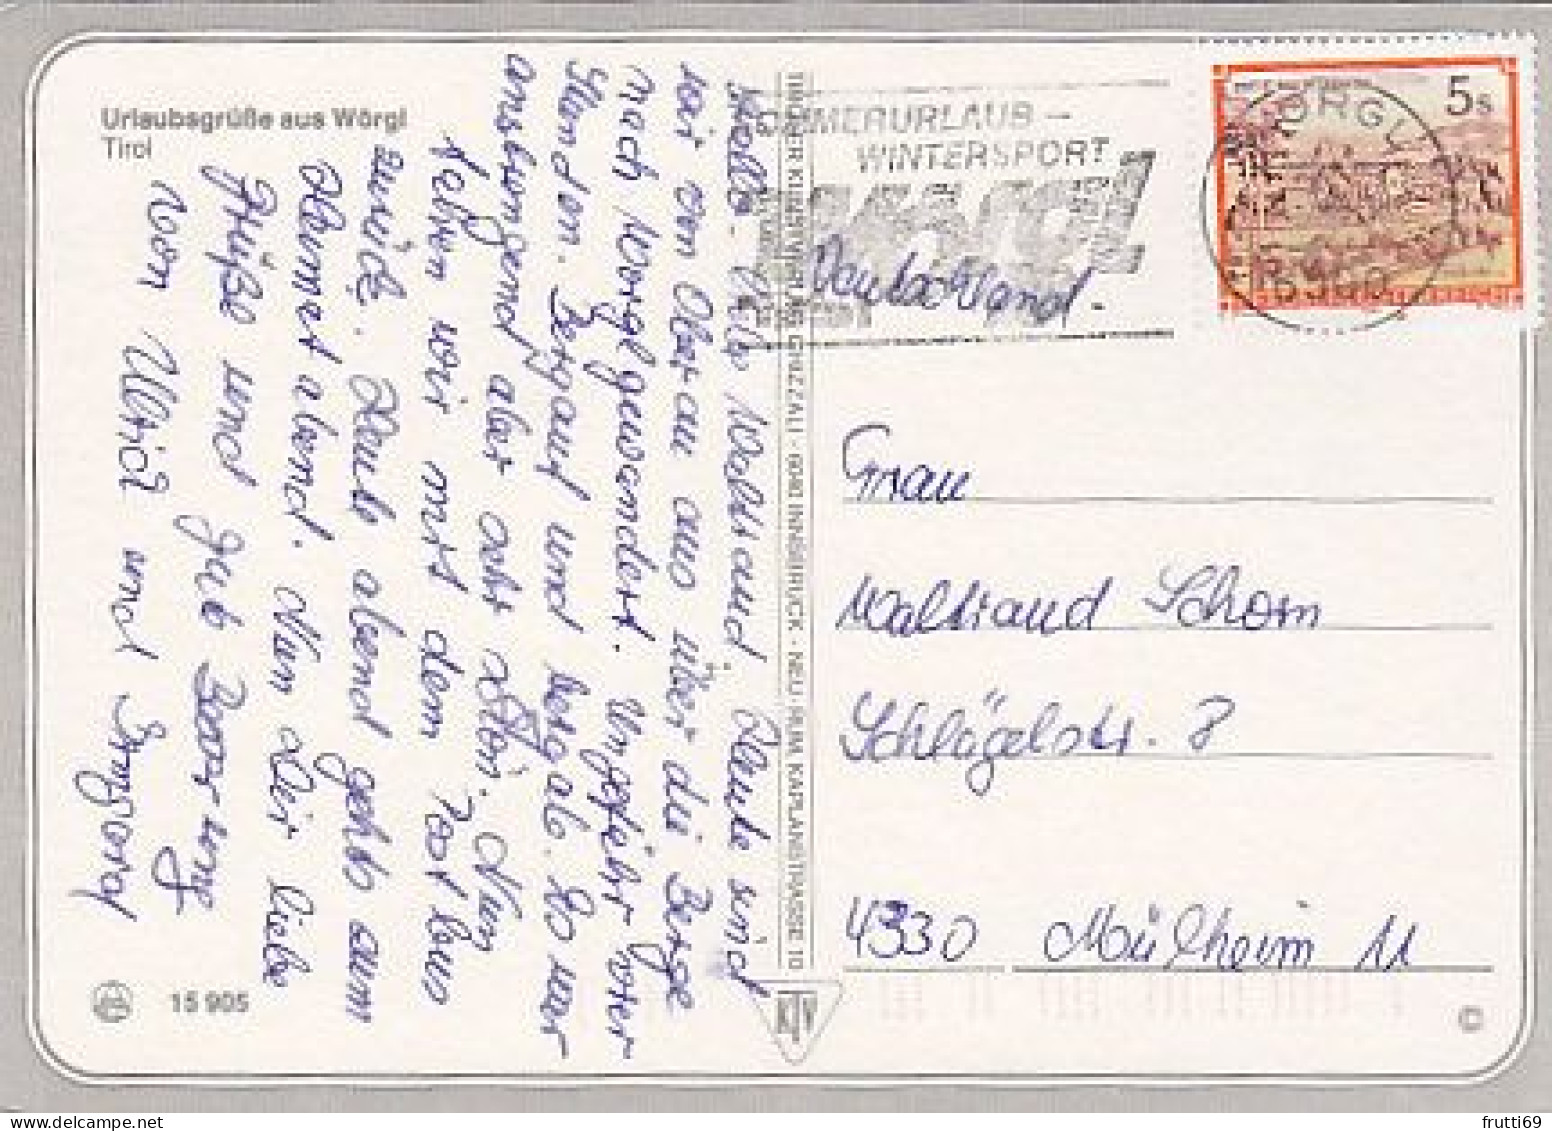 Urlaubsgrüße aus Wörgl
Tirol
Hallo. Waltraud. Heute sind
wir von Oberau aus über die Berge
nach Wörgl gewandert. Ungefähr vier
Stunden. Bergauf und bergab. Es war
anstrengend aber sehr schön. Nun
fahren wir mit dem Postbus
zurück. Heute abend gehts zum
Heimatabend. Nun Dir liebe
Grüße und gute
von Ullrich und Irmgard
15 905
TIROLER KUNSTVERLAG CHIZZALI · 6040 INNSBRUCK · NEU-RUM, KAPLANSTRASSE 10
KTV
SOMMERURLAUB –
WINTERSPORT
WÖRGL
WÖRGL
6300
5s
Deutschland.
Frau
Waltraud Schorn
Schlägelstr. 8
4330 Mülheim 11
©
frutti69